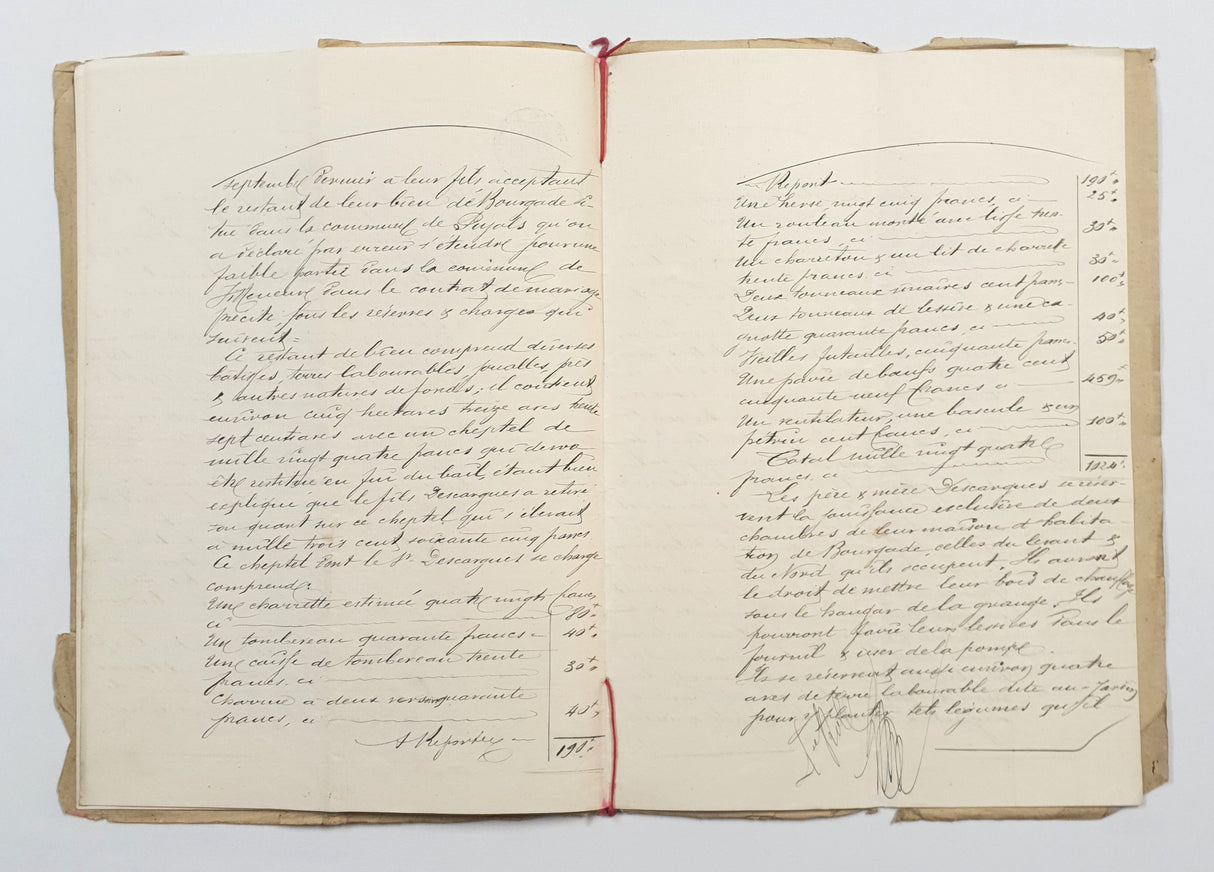 septembre Dernier à leur fils acceptant
le restant de leur bien de Bourgade si-
tué Dans la commune de Pujols qu'on
a déclaré par erreur s'étendre pour une
faible partie Dans la commune de
Villeneuve Dans le contrat de mariage
précité, sous les réserves & charges qui
suivent =
Ce restant de bien comprend diverses
batisses, terres labourables, joualles, prés
& autres natures de fonds; il contient
environ cinq hectares treize ares trente
sept centiares avec un cheptel de
mille vingt quatre francs qui devra
être restitué en fin du bail, étant bien
expliqué que le fils Descargues a retiré
son quant sur ce cheptel qui s'élevait
à mille trois cent soixante cinq francs
Ce cheptel Dont le Sr. Descargues se charge
comprend:
Une charrette estimée quatre vingts francs,
ci 80f "
Un tombereau quarante francs 40f "
Une caisse de tombereau trente
francs. ci 30f "
Charrue à deux versoirs quarante
francs, ci 40f "
A Reporter 190f "
Report 190f "
Une herse vingt cinq francs, ci 25f "
Un rouleau monté avec tren-
te francs, ci 30f "
Un charreton & un lit de charrette
trente francs. ci 30f "
Deux tonneaux vinaires cent francs 100f "
Deux tonneaux de lessive & une ca-
notte quarante francs, ci 40f "
Vieilles futailles, cinquante francs. 50f "
Une paire de bœufs quatre cent
cinquante neuf francs ci 459f "
Un ventilateur, une bascule & un
pétrin cent francs, ci 100f "
Total mille vingt quatre
francs, ci 1024f
Les père & mère Descargues se réser-
vent la jouissance exclusive de deux
chambres de leur maison d'habita-
tion de Bourgade, celles du levant &
du Nord qu'ils occupent. Ils auront
le droit de mettre leur bois de chauffage
sous le hangar de la grange. Ils
pourront faire leurs lessives Dans le
fournil & user de la pompe.
Ils se réservent aussi environ quatre
ares de terre labourable dite au Jardin
pour y planter tels légumes qu'il